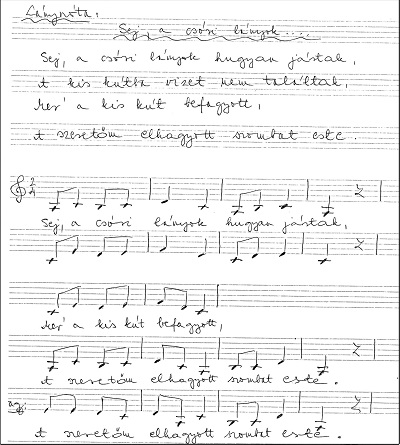 Lánynóta:
Sej, a csósi lányok ....
Sej, a csósi lányok hugyan jástak,
A kis kútba vizet nem találtak,
Mer' a kis kút befagyott,
A szeretőm elhagyott szombat este.
2/4
Sej, a csósi lányok hugyan jástak,
Mer' a kis kút befagyott,
A szeretőm elhagyott szombat este.
A szeretőm elhagyott szombat este.